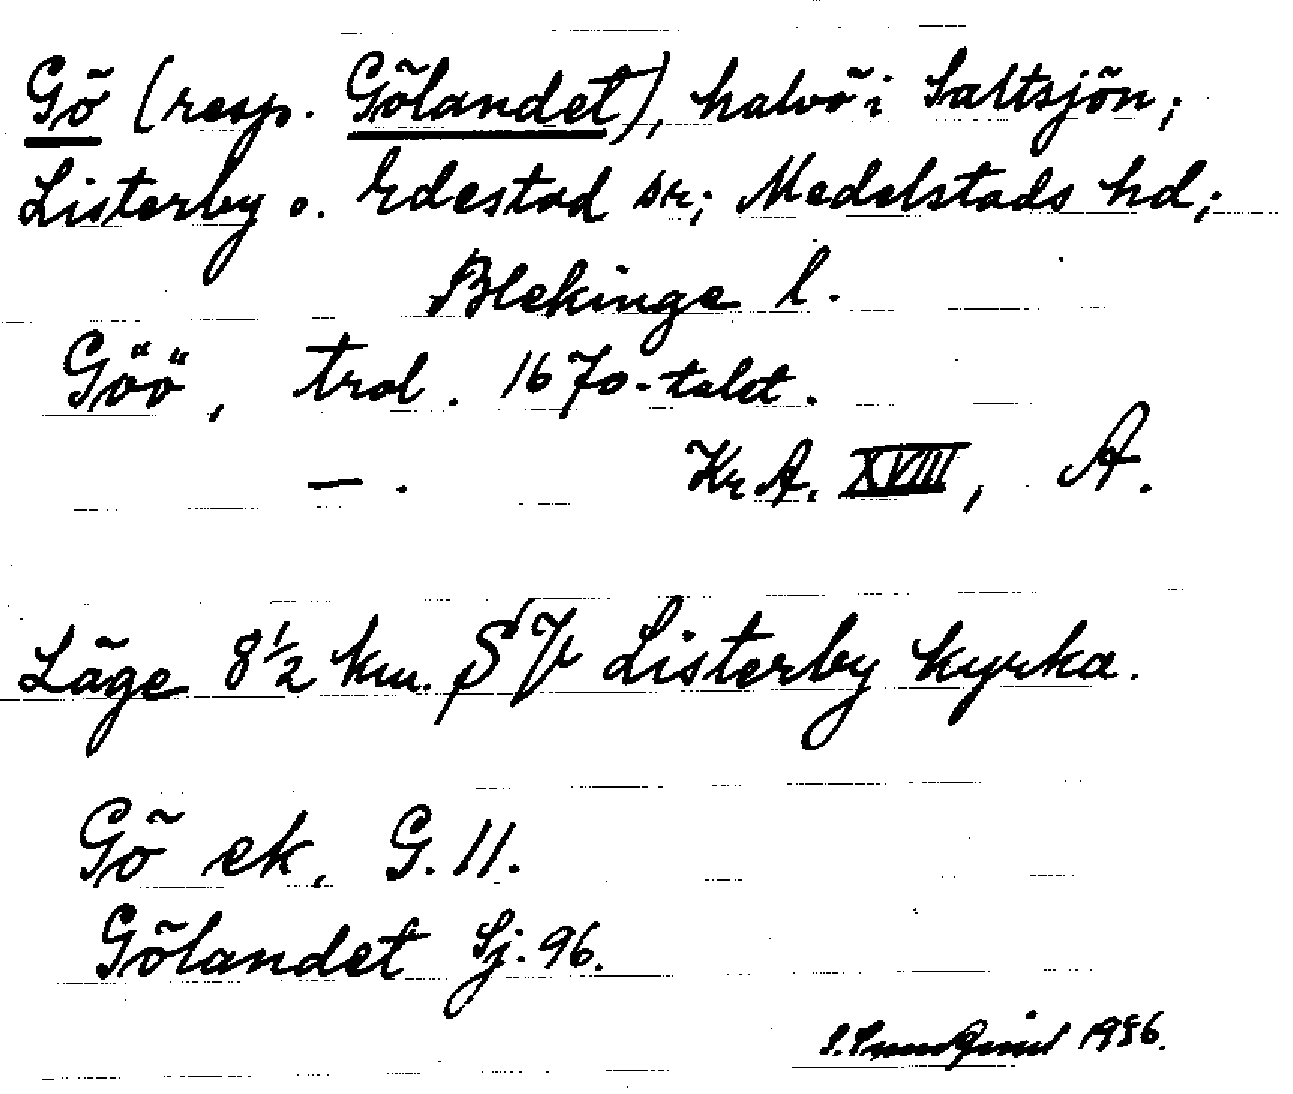 Gö (resp. Gölandet), halvö i Saltsjön;
Listerby o. Edestad sr; Medelstads hd;
Blekinge l.
Göö, trol. 1670-talet.
— . KrA. XVIII, A.
Läge 8½ km. S Listerby kyrka.
Gö ek. G. 11.
Gölandet Sj. 96.
1956.